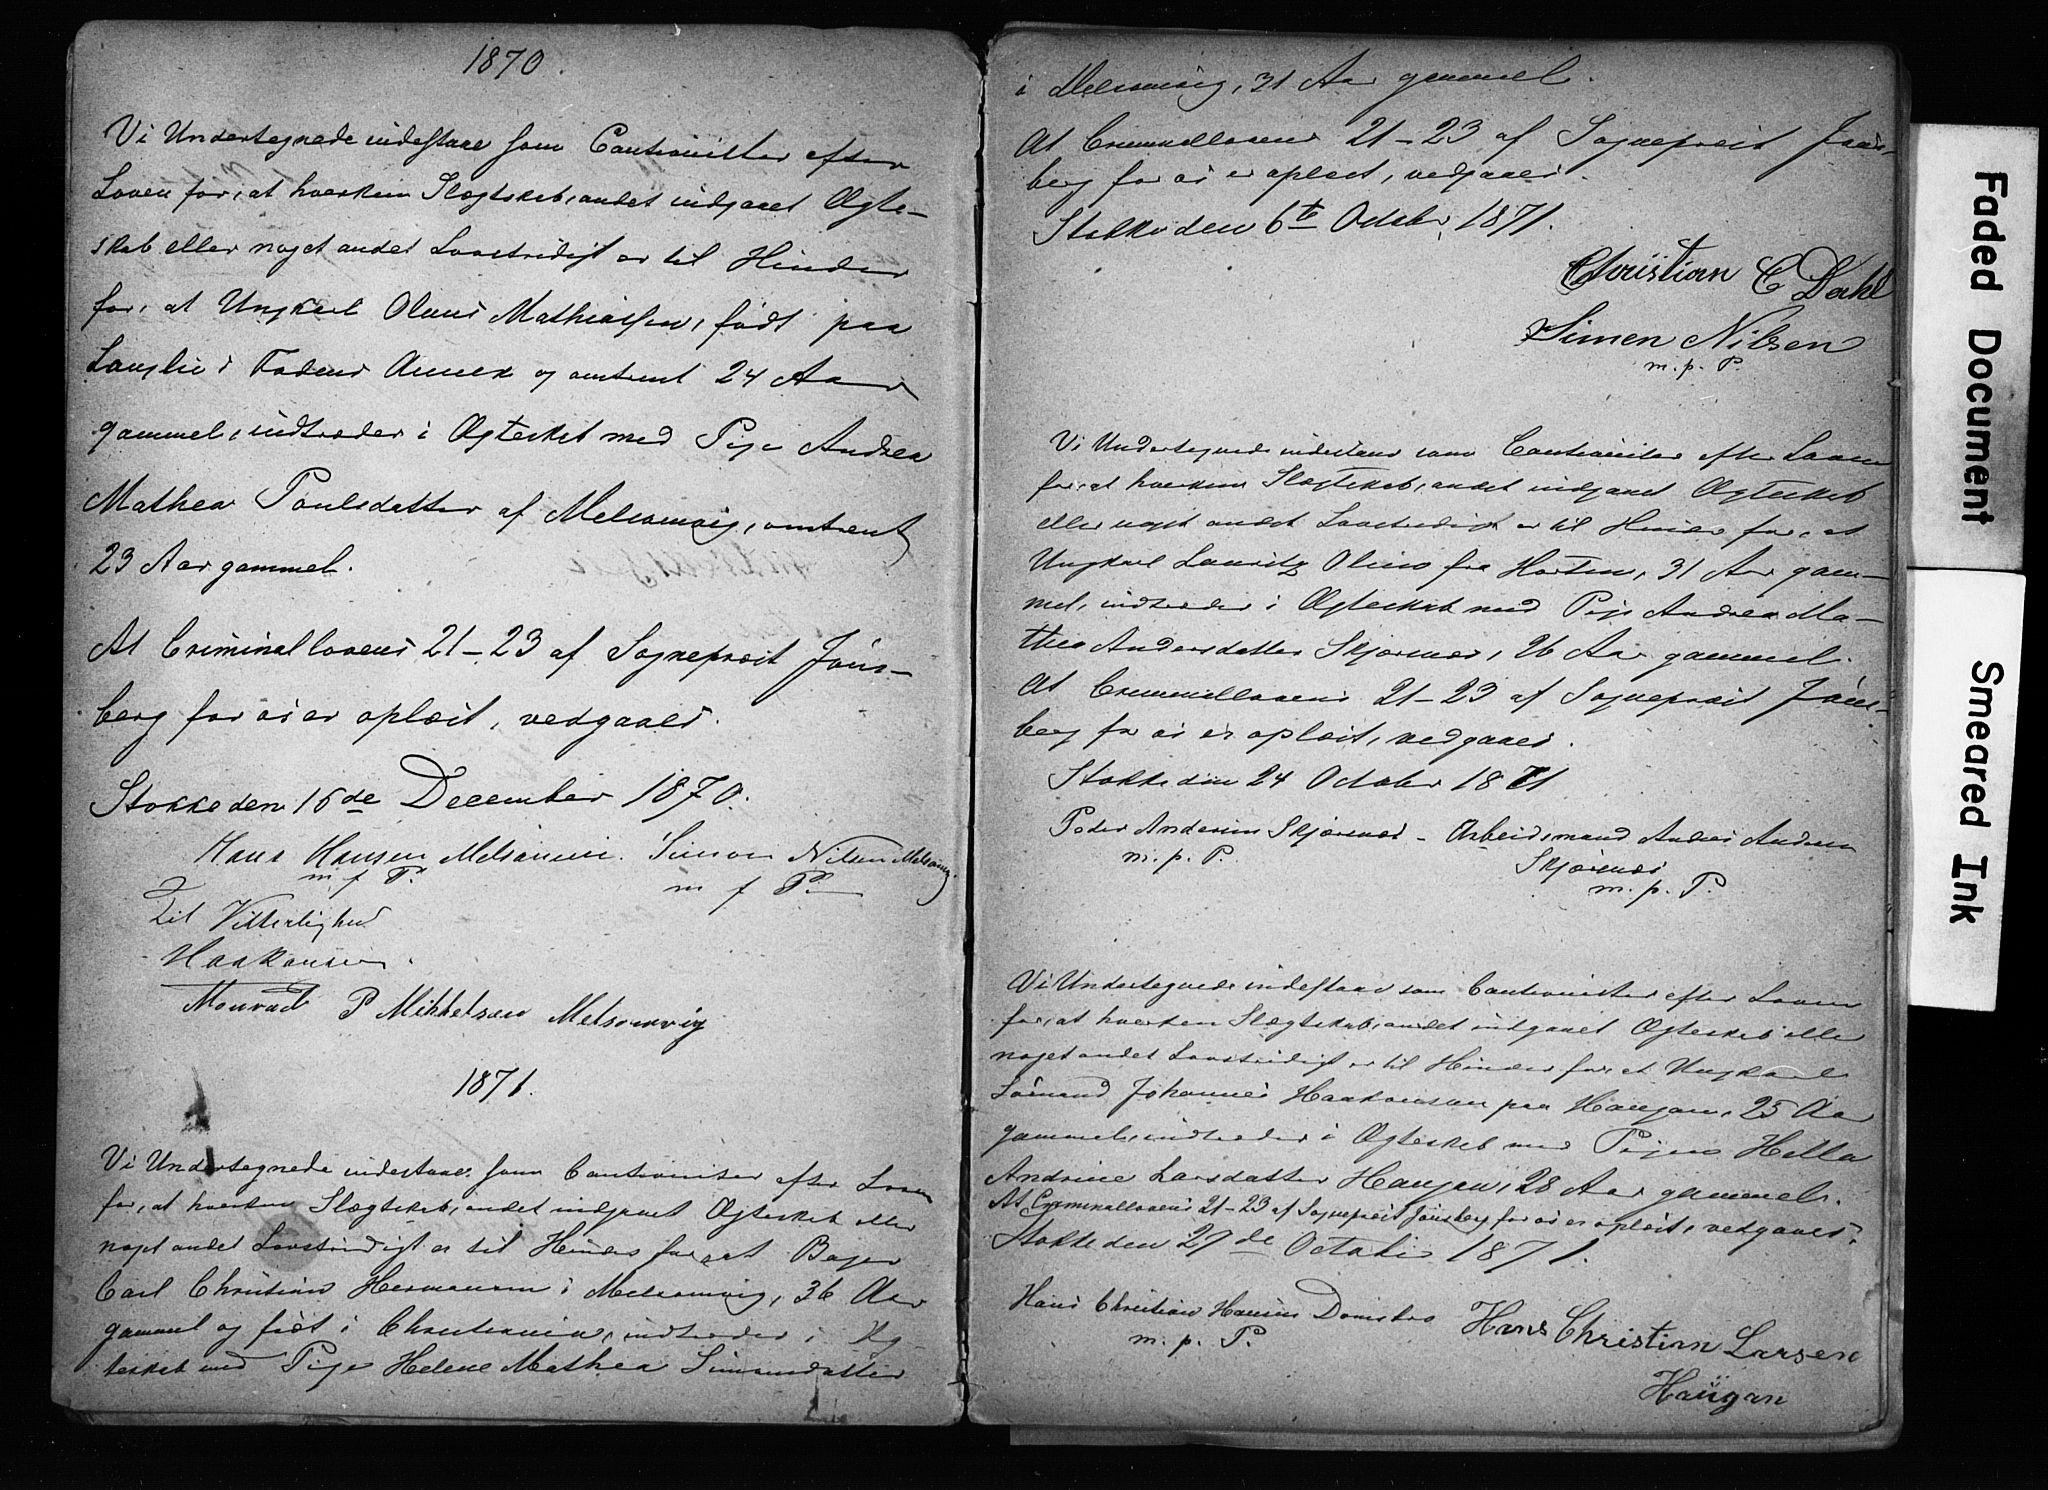 1870.
Vi Undertegnede indestaae som Cautionister efter
Loven for, at hverken Slægtskab, andet indgaaet Ægte-
skab eller noget andet Lovstridigt er til Hinder
for, at Ungkarl Olaus Mathiassen, født paa
Langlie i Fodens Annex og omtrent 24 Aar
gammel, indtræder i Ægteskab med Pige Andrea
Mathea Poulsdatter af Melsomvig, omtrent
23 Aar gammel.
At Criminallovens 21-23 af Sogneprest Jöns-
berg for os er oplæst, vedgaaes.
Stokke den 16de December 1870.
Hans Hansen Melsomvi. Simon Nilsen Melsomvig
m f P. m f P
Til Vitterlighed
Haakonsen.
Monrad P Mikkelsen Melsomvig
1871.
Vi Undertegnede indestaae som Cautionister efter Loven
for, at hverken Slægtskab, andet indgaaet Ægteskab eller
noget andet Lovstridigt er til Hinder for, at Bager
Carl Christian Hermansen i Melsomvig, 36 Aar
gammel og født i Christiania, indtræder i Æg
teskab med Pige Helene Mathea Simonsdatter
i Melsomvig, 31 Aar gammel.
At Criminallovens 21-23 af Sogneprest Jöns-
berg for os er oplæst, vedgaaes.
Stokke den 6te October 1871.
Christian C Dahl
Simen Nilsen
m. p. P.
Vi Undertegnede indestaae som Cautionister efter Loven
for, at hverken Slægtskab, andet indgaaet Ægteskab
eller noget andet Lovstridigt er til Hinder for, at
Ungkarl Lauritz Olsen fra Horten, 31 Aar gam-
mel, indtræder i Ægteskab med Pige Andrea Ma-
thea Andersdatter Skjærsnes, 26 Aar gammel.
At Criminallovens 21-23 af Sogneprest Jöns-
berg for os er oplæst, vedgaaes.
Stokke den 24 October 1871
Peder Andersen Skjærsnes - Arbeidsmand Anders Andersen
m. p. P. Skjærsnes
m. p. P.
Vi Undertegnede indestaae som Cautionister efter Loven
for, at hverken Slægtskab, andet indgaaet Ægteskab eller
noget andet Lovstridigt er til Hinder for, at Ungkarl
Sømand Johannes Haakonsen paa Haugan, 25 Aar
gammel, indtræder i Ægteskab med Pigen Hella
Andrine Larsdatter Haugan, 28 Aar gammel.
At Criminallovens 21-23 af Sogneprest Jönsberg for os er oplæst, vedgaaes.
Stokke den 27de October 1871.
Hans Christian Hansen Hans Christian Larsen
m. p. P. Haugan
Faded Document
Smeared Ink